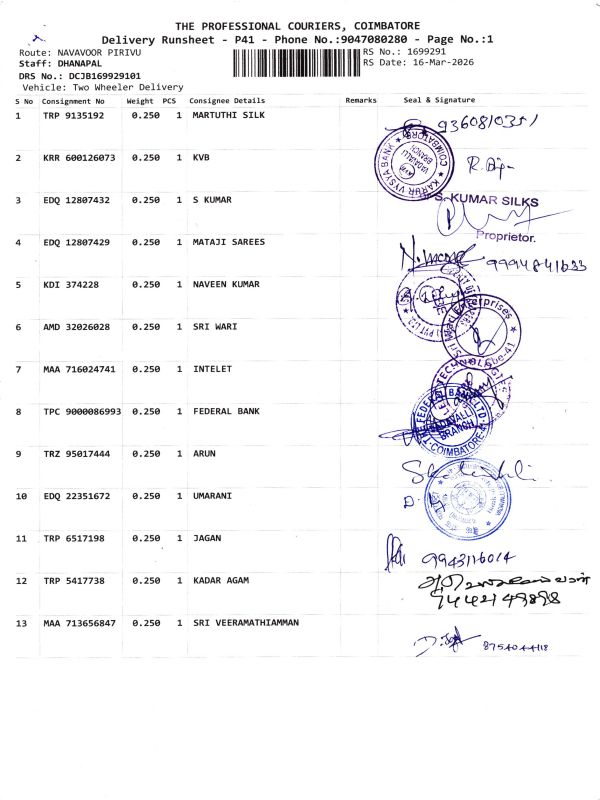 THE PROFESSIONAL COURIERS, COIMBATORE
Delivery Runsheet - P41 - Phone No.:9047080280 - Page No.:1
Route: NAVAVOOR PIRIVU
RS No.: 1699291
Staff: DHANAPAL
RS Date: 16-Mar-2026
DRS No.: DCJB169929101
Vehicle: Two Wheeler Delivery
S No Consignment No Weight PCS Consignee Details Remarks Seal & Signature
1 TRP 9135192 0.250 1 MARTUTHI SILK 9360810351
2 KRR 600126073 0.250 1 KVB KARUR VYSYA BANK COIMBATORE VADAVALLI BRANCH
3 EDQ 12807432 0.250 1 S KUMAR S. KUMAR SILKS
Proprietor.
4 EDQ 12807429 0.250 1 MATAJI SAREES 9994841633
5 KDI 374228 0.250 1 NAVEEN KUMAR
6 AMD 32026028 0.250 1 SRI WARI Enterprises
7 MAA 716024741 0.250 1 INTELET
8 TPC 9000086993 0.250 1 FEDERAL BANK THE FEDERAL BANK LTD VADAVALLI BRANCH COIMBATORE
9 TRZ 95017444 0.250 1 ARUN
10 EDQ 22351672 0.250 1 UMARANI
11 TRP 6517198 0.250 1 JAGAN 9943116014
12 TRP 5417738 0.250 1 KADAR AGAM
9442149898
13 MAA 713656847 0.250 1 SRI VEERAMATHIAMMAN 8754044118